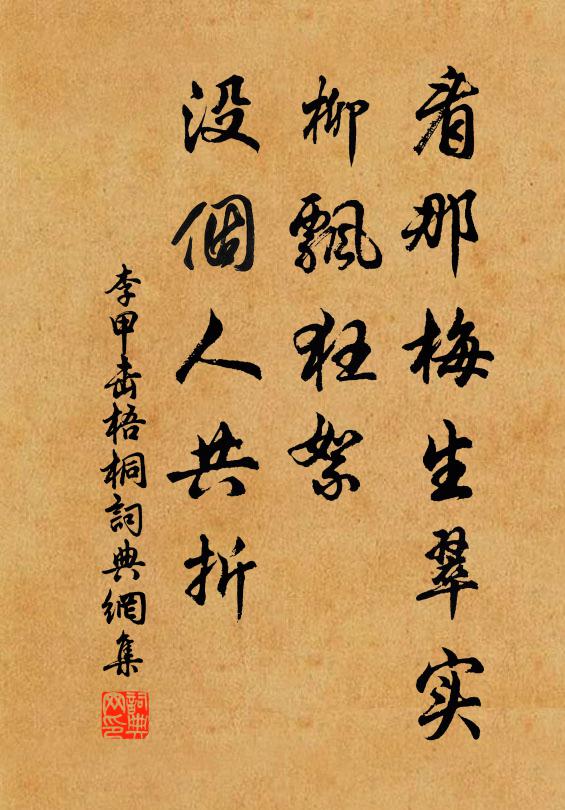 看那梅生翠实
柳飘狂絮
没個人共折
李甲击梧桐詞典網集
詞典网印